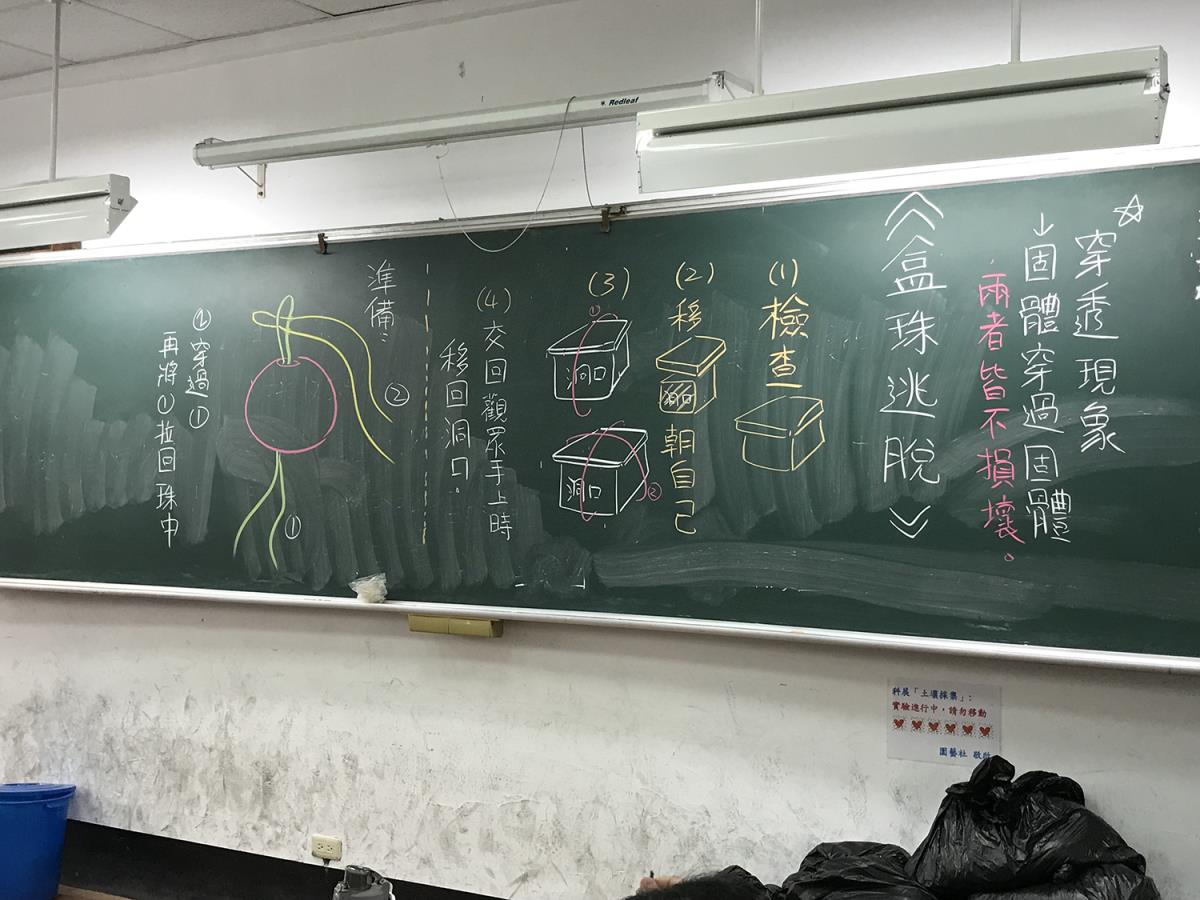 ☆穿透現象
↓固體穿過固體
兩者皆不損壞。
《盒珠逃脫》
(1)檢查
(2)移
洞口
朝自己
(3)
①
洞口
洞口
②
(4)交回觀眾手上時
移回洞口。
準備:
②
①
②穿過①
再將①拉回珠中
Redleaf
科展「土壤採集」:
實驗進行中,請勿移動
園藝社 敬啟